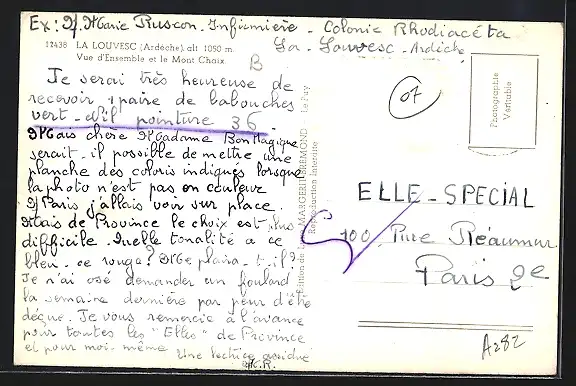 Ex: Jf. Marie Ruscon. Infirmière - Colonie Rhodiacéta
La Louvesc - Ardèche
12438 - LA LOUVESC (Ardèche) alt. 1050 m.
Vue d'Ensemble et le Mont Chaix
B
Je serai très heureuse de
recevoir 1 paire de babouches
vert-d'il pointure 36.
Mais chère Madame Bon Magique
serait-il possible de mettre une
planche des coloris indiqués lorsque
la photo n'est pas en couleur
A Paris j'allais voir sur place.
Mais de Province le choix est plus
difficile. Quelle tonalité a ce
bleu - ce rouge? Me plaira-t-il?
Je n'ai osé demander un foulard
la semaine dernière par peur d'être
déçue. Je vous remercie à l'avance
pour toutes les "Elles" de Province
et pour moi-même Une lectrice assidue
M.R.
MARGERIT-BREMOND Le Puy
Reproduction Interdite
07
Photographie
Véritable
ELLE - SPECIAL
100, Rue Réaumur
Paris 2e
A282